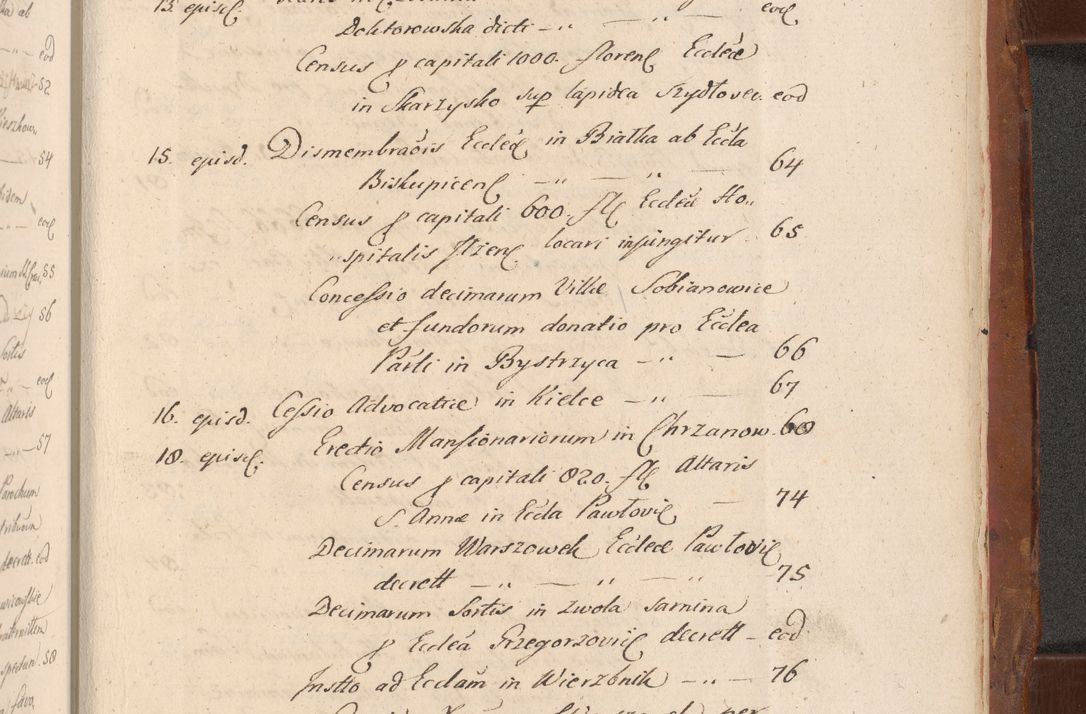 13 episc.
Doktorowska dicti — „ — „ — eod
Census p capitali 1000. floren Eccleæ
in Skarzysko sup lapidea Szydłovec. eod
15. episd. Dismembraõis Eccleæ in Białka ab Eccla
Biskupicen — „ — „ — 64
Census p capitali 600. fl Ecclea Ho„
„spitalis Jlzen locari injungitur 65
Concessio decimarum Villæ Sobianowice
et fundorum donatio pro Ecclea
Parli in Bystrzyca — „ — 66
16. episd. Cessio Advocatiæ in Kielce — „ — 67
18. episc. Erectio Mansionariorum in Chrzanow. 68
Census p capitali 820. fl Altaris
S. Annæ in Eccla Pawłovic — 74
Decimarum Warszowek Eccleæ Pawłovic
decrett — „ — „ — „ 75
Decimarum Sortis in Zwola Sarnina
p Ecclea Grzegorzovic decrett — eod
Jnstto ad Ecclam in Wierzbnik — „ — 76
eod
52
54
55
56
Sortis
Altaris
57
Parochum
decrett. eod
58